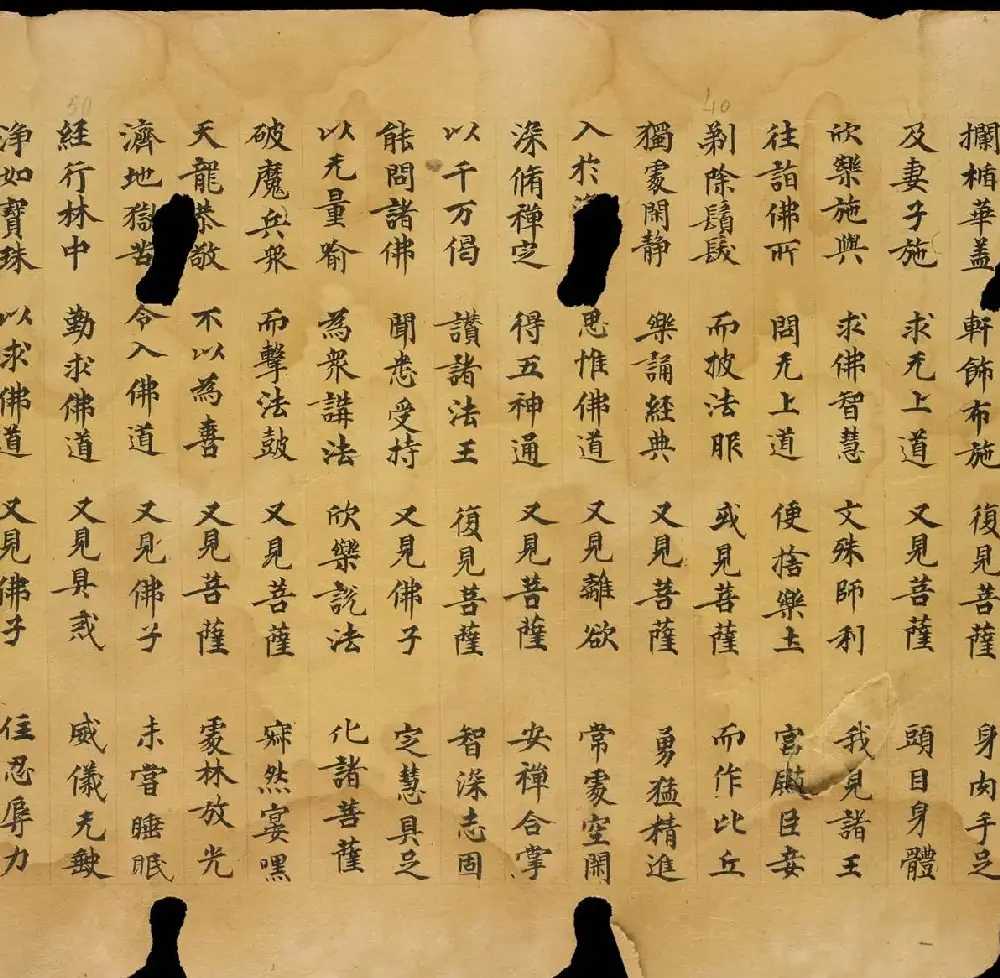 欄楯華盖 軒飾布施 復見菩薩 身肉手足
及妻子施 求无上道 又見菩薩 頭目身體
欣樂施與 求佛智慧 文殊師利 我見諸王
往詣佛所 問无上道 便捨樂土 宮殿臣妾
40
剃除鬚髮 而披法服 或見菩薩 而作比丘
獨處閑静 樂誦經典 又見菩薩 勇猛精進
入於 思惟佛道 又見離欲 常處空閑
深脩禪定 得五神通 又見菩薩 安禪合掌
以千万偈 讃諸法王 復見菩薩 智深志固
能問諸佛 聞悉受持 又見佛子 定慧具足
以无量喻 為衆講法 欣樂說法 化諸菩薩
破魔兵衆 而擊法鼓 又見菩薩 寂然宴嘿
天龍恭敬 不以為喜 又見菩薩 處林放光
濟地獄苦 令入佛道 又見佛子 未甞睡眠
50
經行林中 勤求佛道 又見具戒 威儀无缺
淨如寶珠 以求佛道 又見佛子 住忍辱力